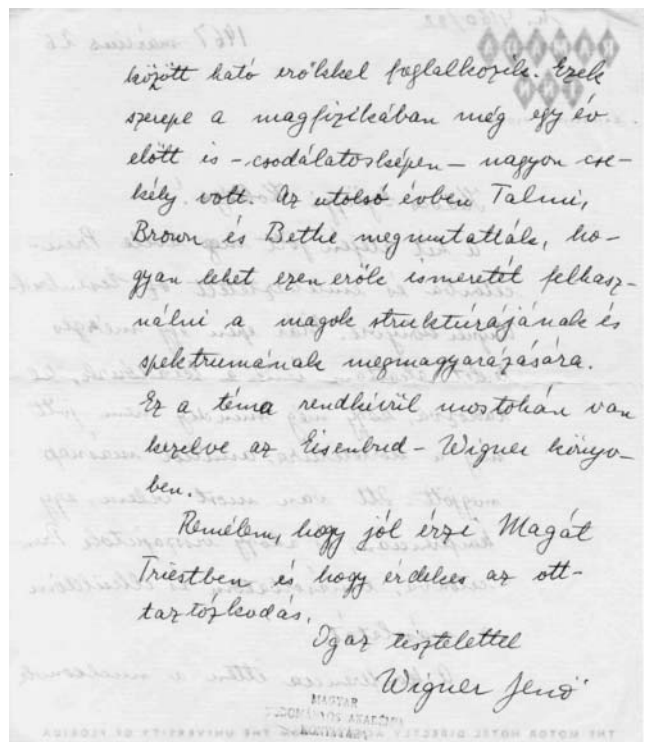 között ható erőkkel foglalkozik. Ezek
szerepe a magfizikában még egy év
előtt is – csodálatosképen – nagyon cse-
kély volt. Az utolsó évben Talmi,
Brown és Bethe megmutatták, ho-
gyan lehet ezen erők ismeretét felhasz-
nálni a magok struktúrájának és
spektrumának megmagyarázására.
Ez a téma rendkívül mostohán van
kezelve az Eisenbud – Wigner könyv-
ben.
Remélem, hogy jól érzi Magát
Triestben és hogy érdekes az ott-
tartózkodás.
Igaz tisztelettel
Wigner Jenő
MAGYAR
TUDOMÁNYOS AKADÉMIA
KÖNYVTÁRA